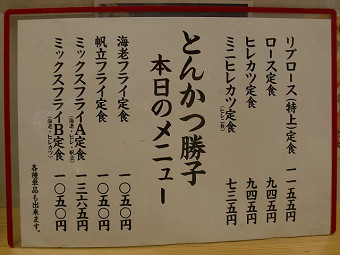 リブロース(特上)定食 一一五五円
ロース定食 九四五円
ヒレカツ定食 九四五円
ミニヒレカツ定食(ヒレ二枚) 七三五円
とんかつ勝子
本日のメニュー
海老フライ定食 一〇五〇円
帆立フライ定食 一〇五〇円
ミックスフライA定食(海老・ヒレ・帆立) 一三六五円
ミックスフライB定食(海老・ヒレカツ) 一〇五〇円
各種単品も出来ます。